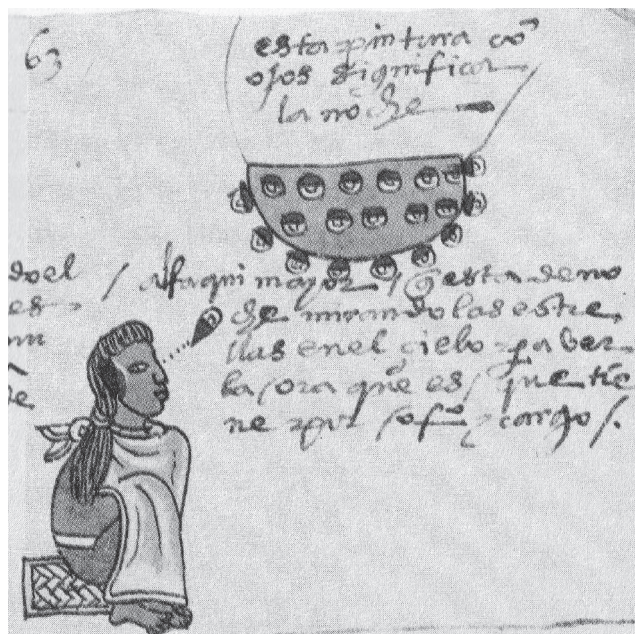 63
esta pintura cō
ojos significa
la noche
do el
es
alfaqui mayor / q̄ esta de no
che mirando las estre
llas en el çielo pa ver
la ora que es / que tie
ne por ofiº y cargo /.